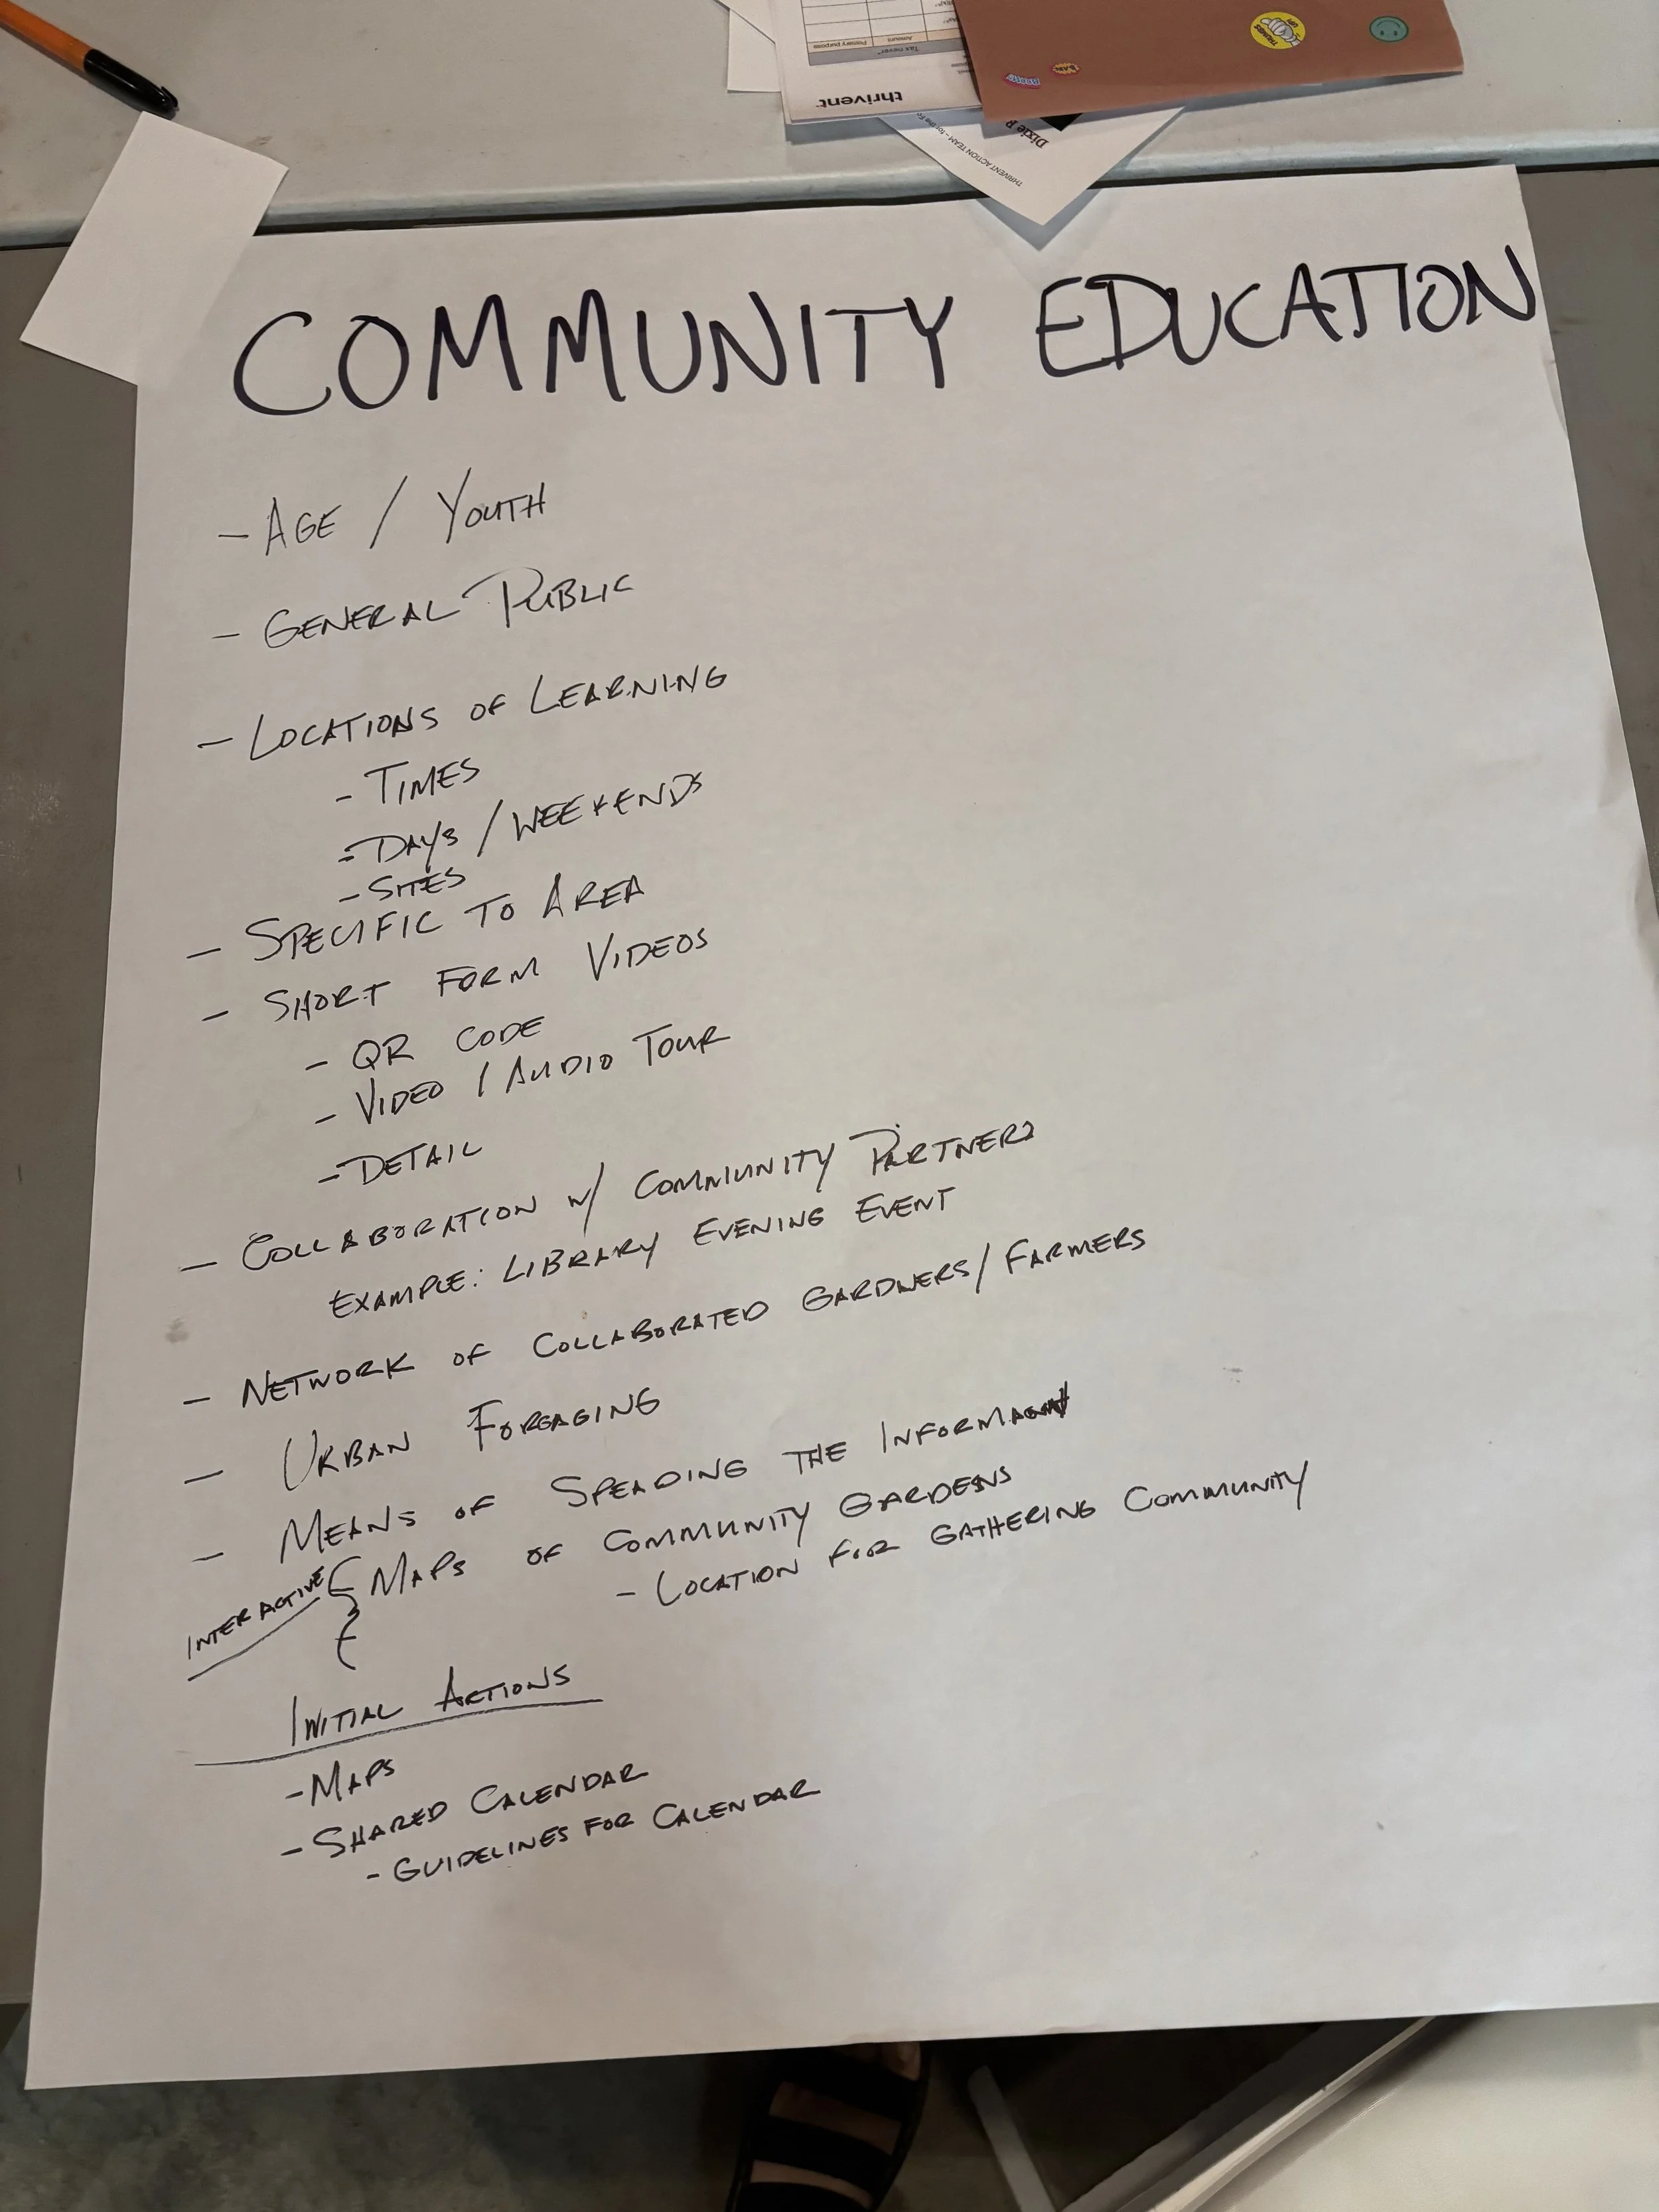 Primary purpose
Amount
Tax name
thrivent
THUMBS UP!
THRIVENT ACTION TEAM – for the
Dixie
COMMUNITY EDUCATION
– AGE / YOUTH
– GENERAL PUBLIC
– LOCATIONS OF LEARNING
- TIMES
- DAYS / WEEKENDS
- SITES
– SPECIFIC TO AREA
– SHORT FORM VIDEOS
- QR CODE
- VIDEO / AUDIO TOUR
- DETAIL
– COLLABORATION w/ COMMUNITY PARTNERS
EXAMPLE: LIBRARY EVENING EVENT
– NETWORK OF COLLABORATED GARDNERS / FARMERS
– URBAN FORGAGING
– MEANS OF SPEADING THE
INTERACTIVE { MAPS OF COMMUNITY GARDENS
- LOCATION FOR GATHERING COMMUNITY
INITIAL ACTIONS
- MAPS
- SHARED CALENDAR
- GUIDELINES FOR CALENDAR